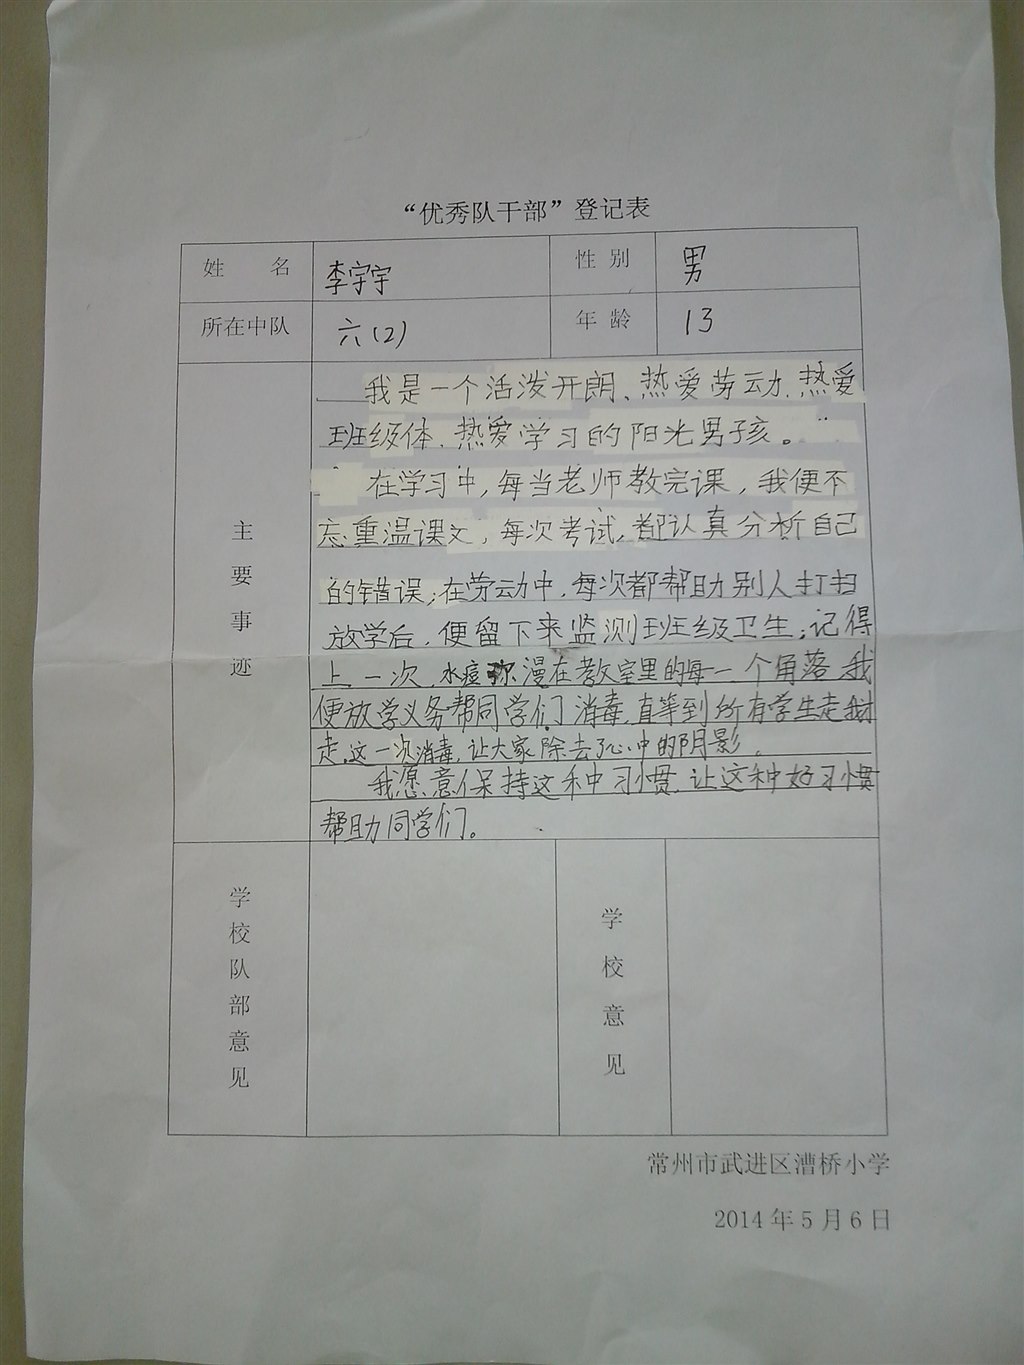 “优秀队干部”登记表
姓 名 李宇宇 性 别 男
所在中队 六(2) 年 龄 13
主要事迹
我是一个活泼开朗、热爱劳动、热爱
班级体、热爱学习的阳光男孩。
在学习中,每当老师教完课,我便不
忘重温课文,每次考试,都认真分析自己
的错误;在劳动中,每次都帮助别人打扫
放学后,便留下来监测班级卫生;记得
上一次,水痘弥漫在教室里的每一个角落,我
便放学义务帮同学们消毒,直等到所有学生走我才
走,这一次消毒,让大家除去了心中的阴影。
我愿意保持这种习惯,让这种好习惯
帮助同学们。
学校队部意见 学校意见
常州市武进区漕桥小学
2014年5月6日